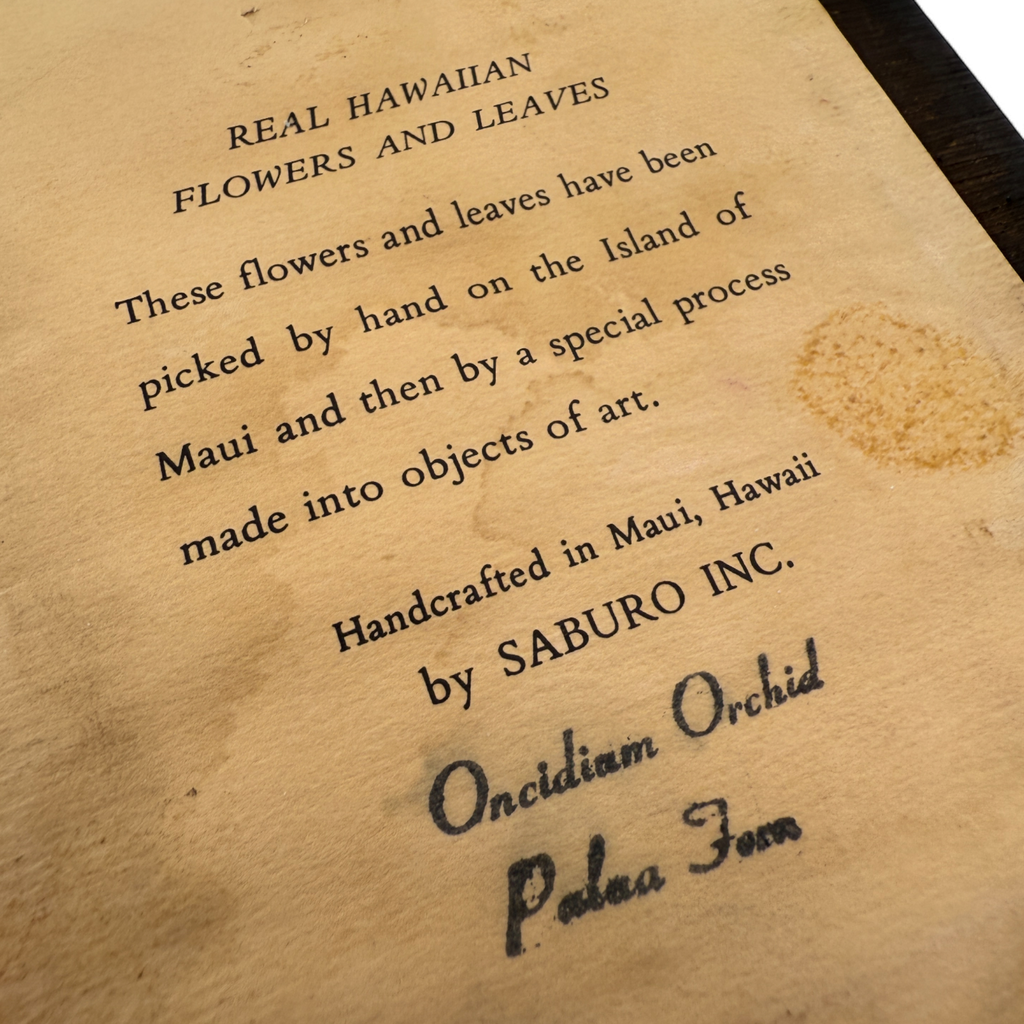 REAL HAWAIIAN
FLOWERS AND LEAVES
These flowers and leaves have been
picked by hand on the Island of
Maui and then by a special process
made into objects of art.
Handcrafted in Maui, Hawaii
by SABURO INC.
Oncidium Orchid